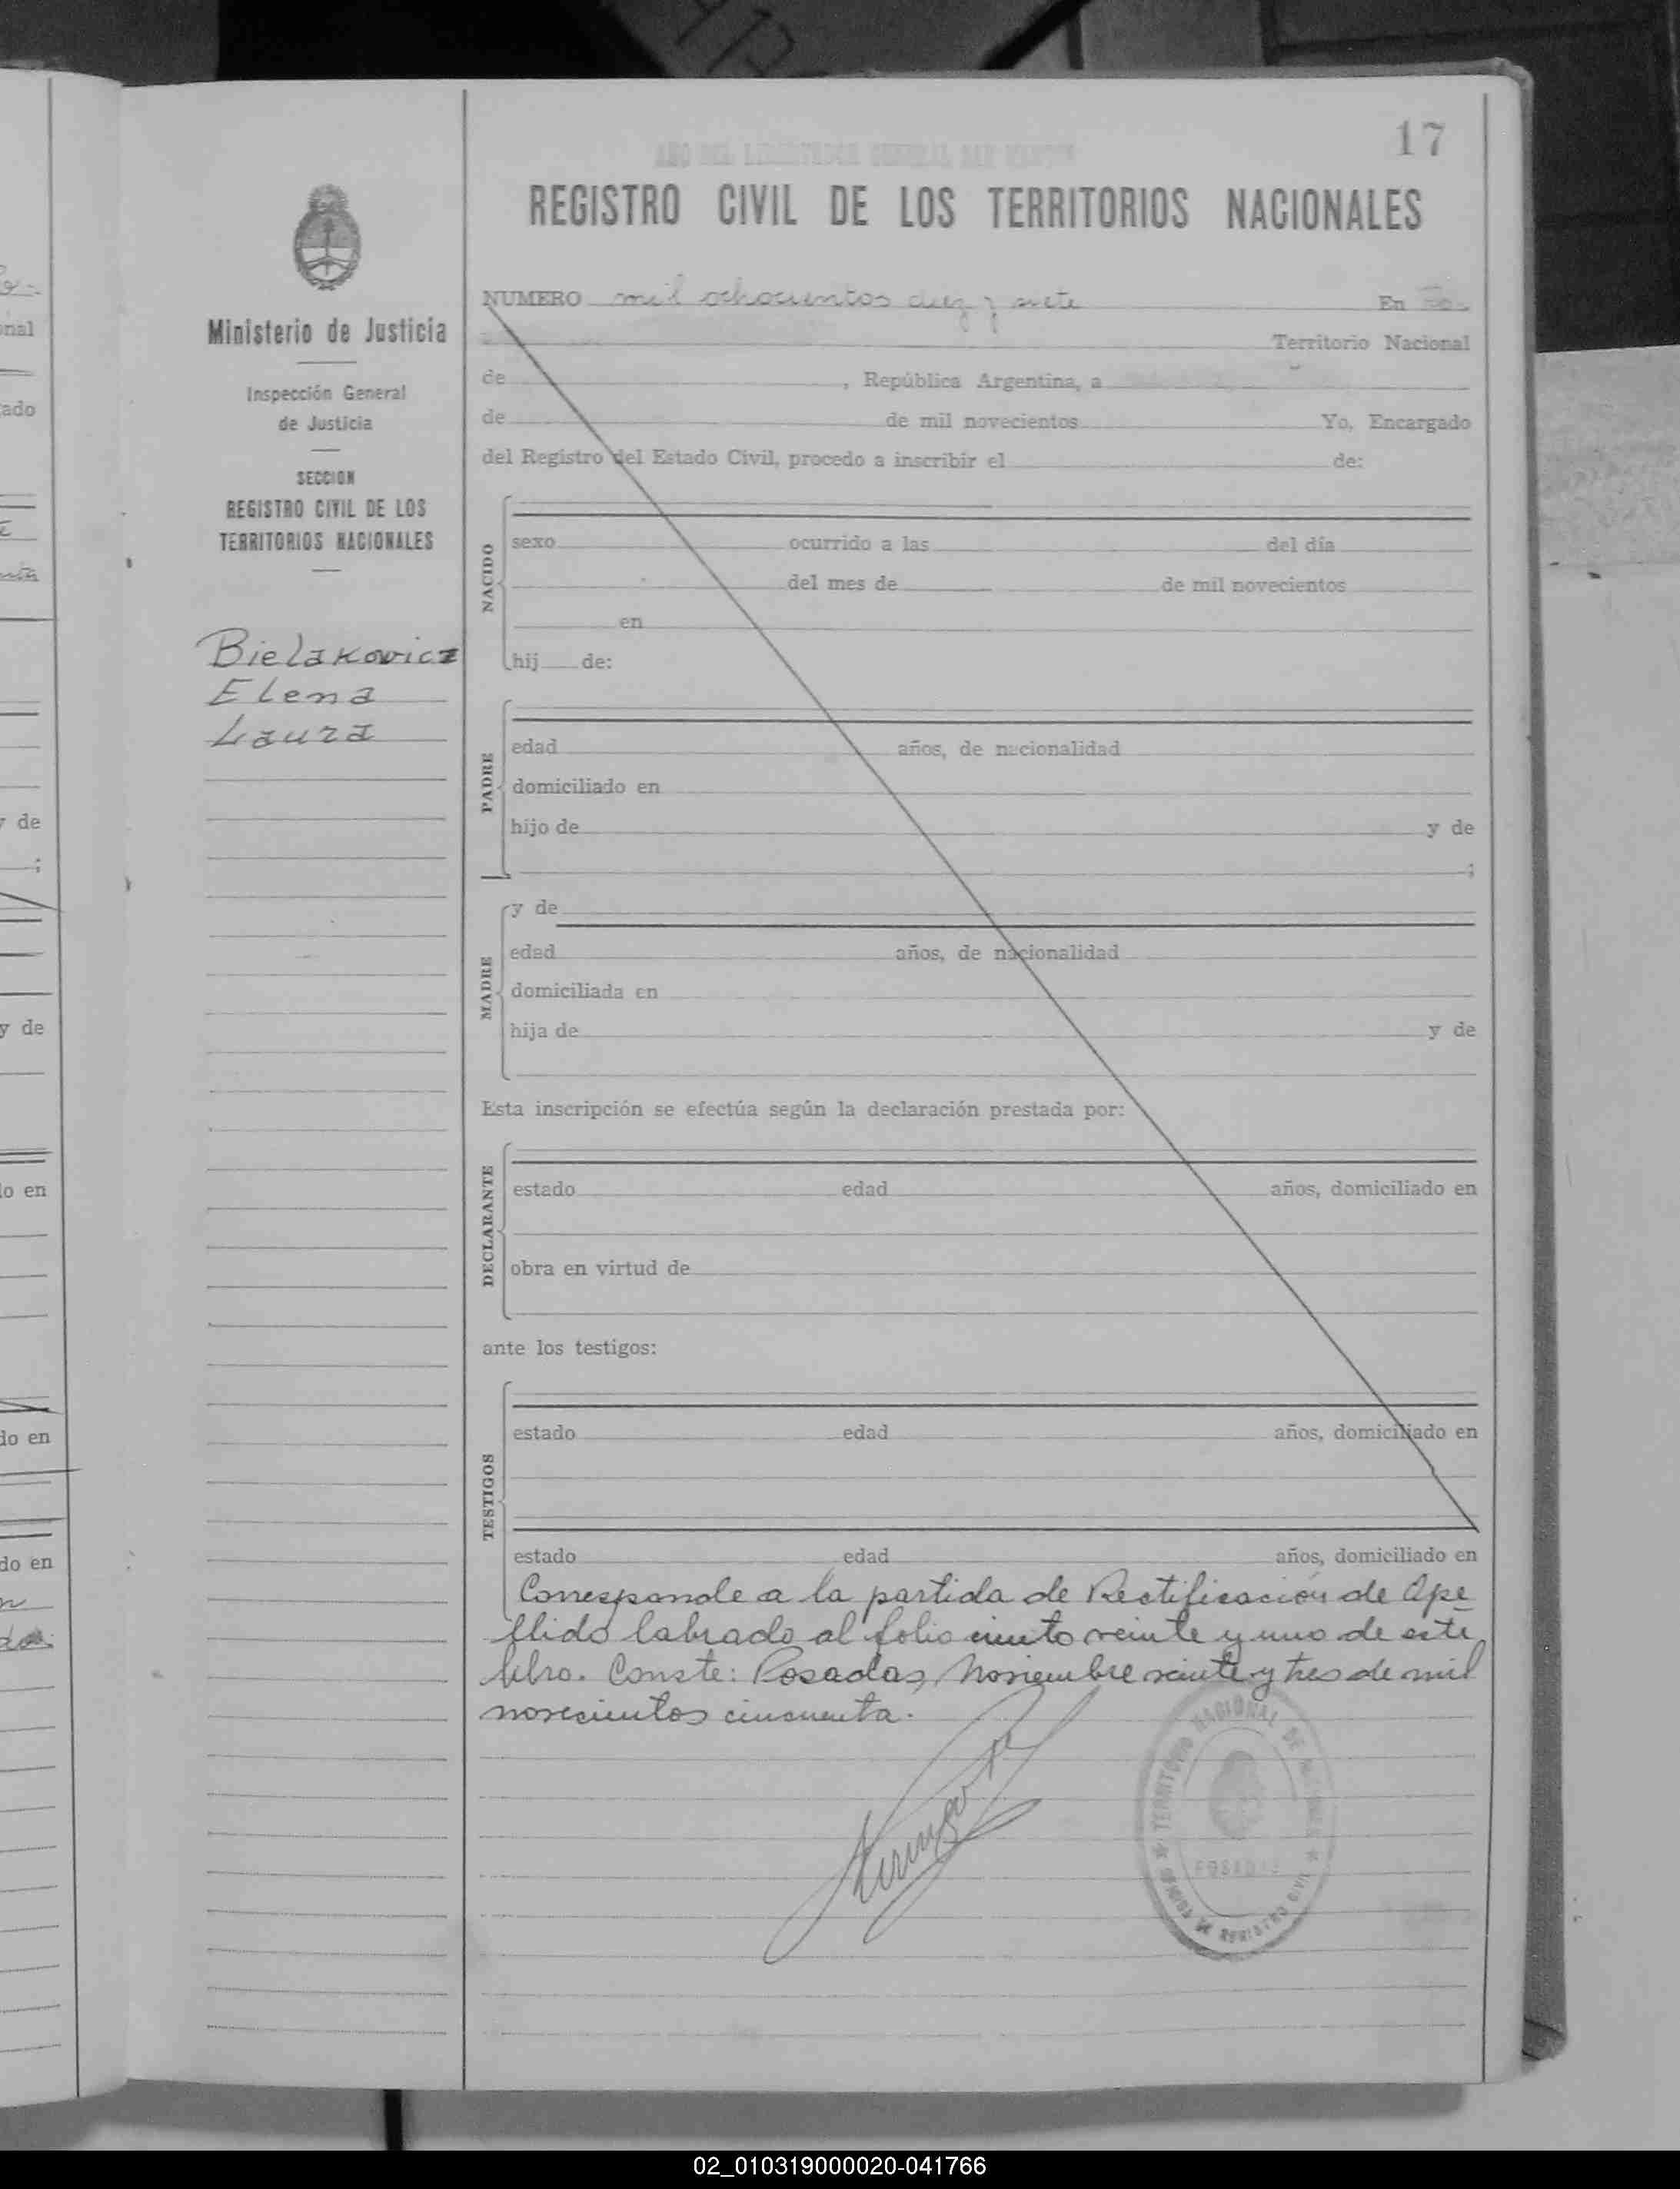 17
AÑO DEL LIBERTADOR GENERAL SAN MARTIN
REGISTRO CIVIL DE LOS TERRITORIOS NACIONALES
Ministerio de Justicia
Inspección General
de Justicia
SECCION
REGISTRO CIVIL DE LOS
TERRITORIOS NACIONALES
Bielakowicz
Elena
Laura
NUMERO mil ochocientos diez y siete En
Territorio Nacional
de , República Argentina, a
de de mil novecientos Yo, Encargado
del Registro del Estado Civil, procedo a inscribir el de:
NACIDO
sexo ocurrido a las del día
del mes de de mil novecientos
en
hij de:
PADRE
edad años, de nacionalidad
domiciliado en
hijo de y de
;
MADRE
y de
edad años, de nacionalidad
domiciliada en
hija de y de
Esta inscripción se efectúa según la declaración prestada por:
DECLARANTE
estado edad años, domiciliado en
obra en virtud de
ante los testigos:
TESTIGOS
estado edad años, domiciliado en
estado edad años, domiciliado en
Corresponde a la partida de Rectificación de Ape
llido labrado al folio ciento veinte y uno de este
libro. Conste: Posadas, Noviembre veinte y tres de mil
novecientos cincuenta.
TERRITORIO NACIONAL DE MISIONES
POSADAS
OFICINA DE REGISTRO CIVIL
nal
ado
y de
;
y de
do en
do en
do en
02_010319000020-041766